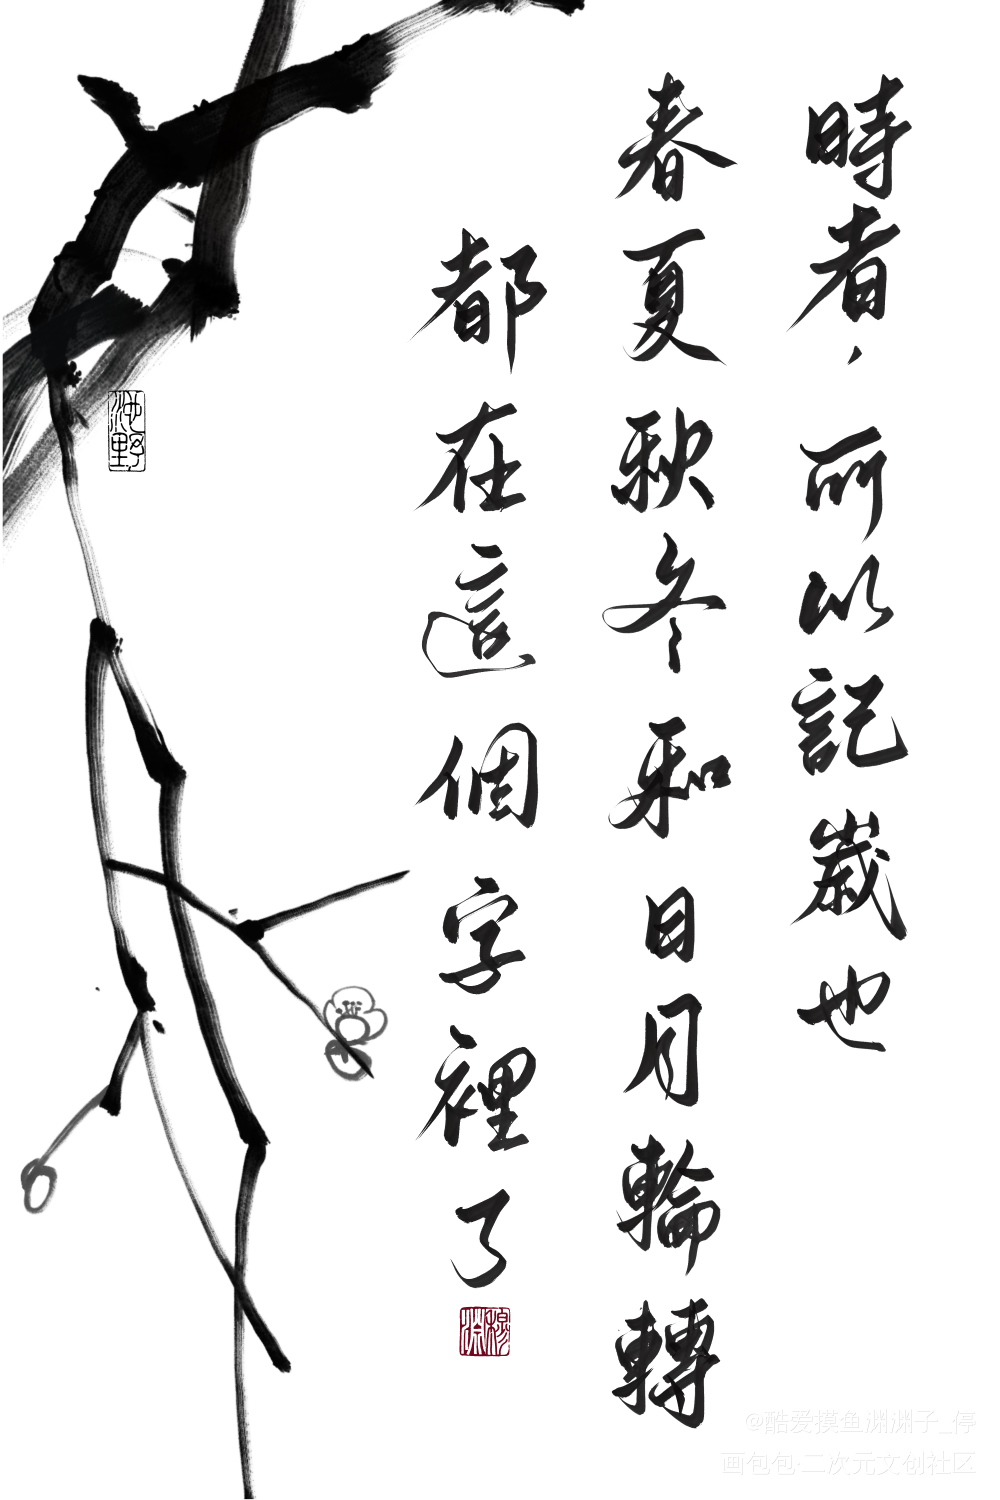 時者，所以記歲也
春夏秋冬和日月輪轉
都在這個字裡了
池野
穆淵
@酷爱摸鱼渊渊子_停
画包包·二次元文创社区